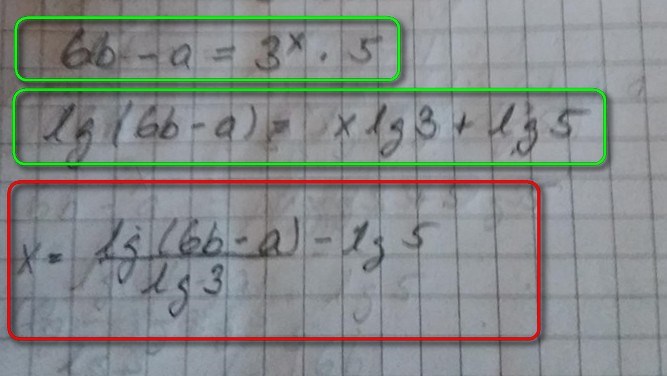 6b - a = 3^x · 5
lg (6b - a) = x lg 3 + lg 5
x = lg (6b - a) / lg 3 - lg 5